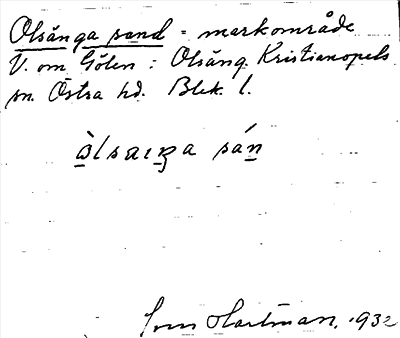 Olsänga sand = markområde
V. om Gölen : Olsäng. Kristianopels
sn. Östra hd. Blek. l.
òlsaıŋa sán
Hartman, 1932